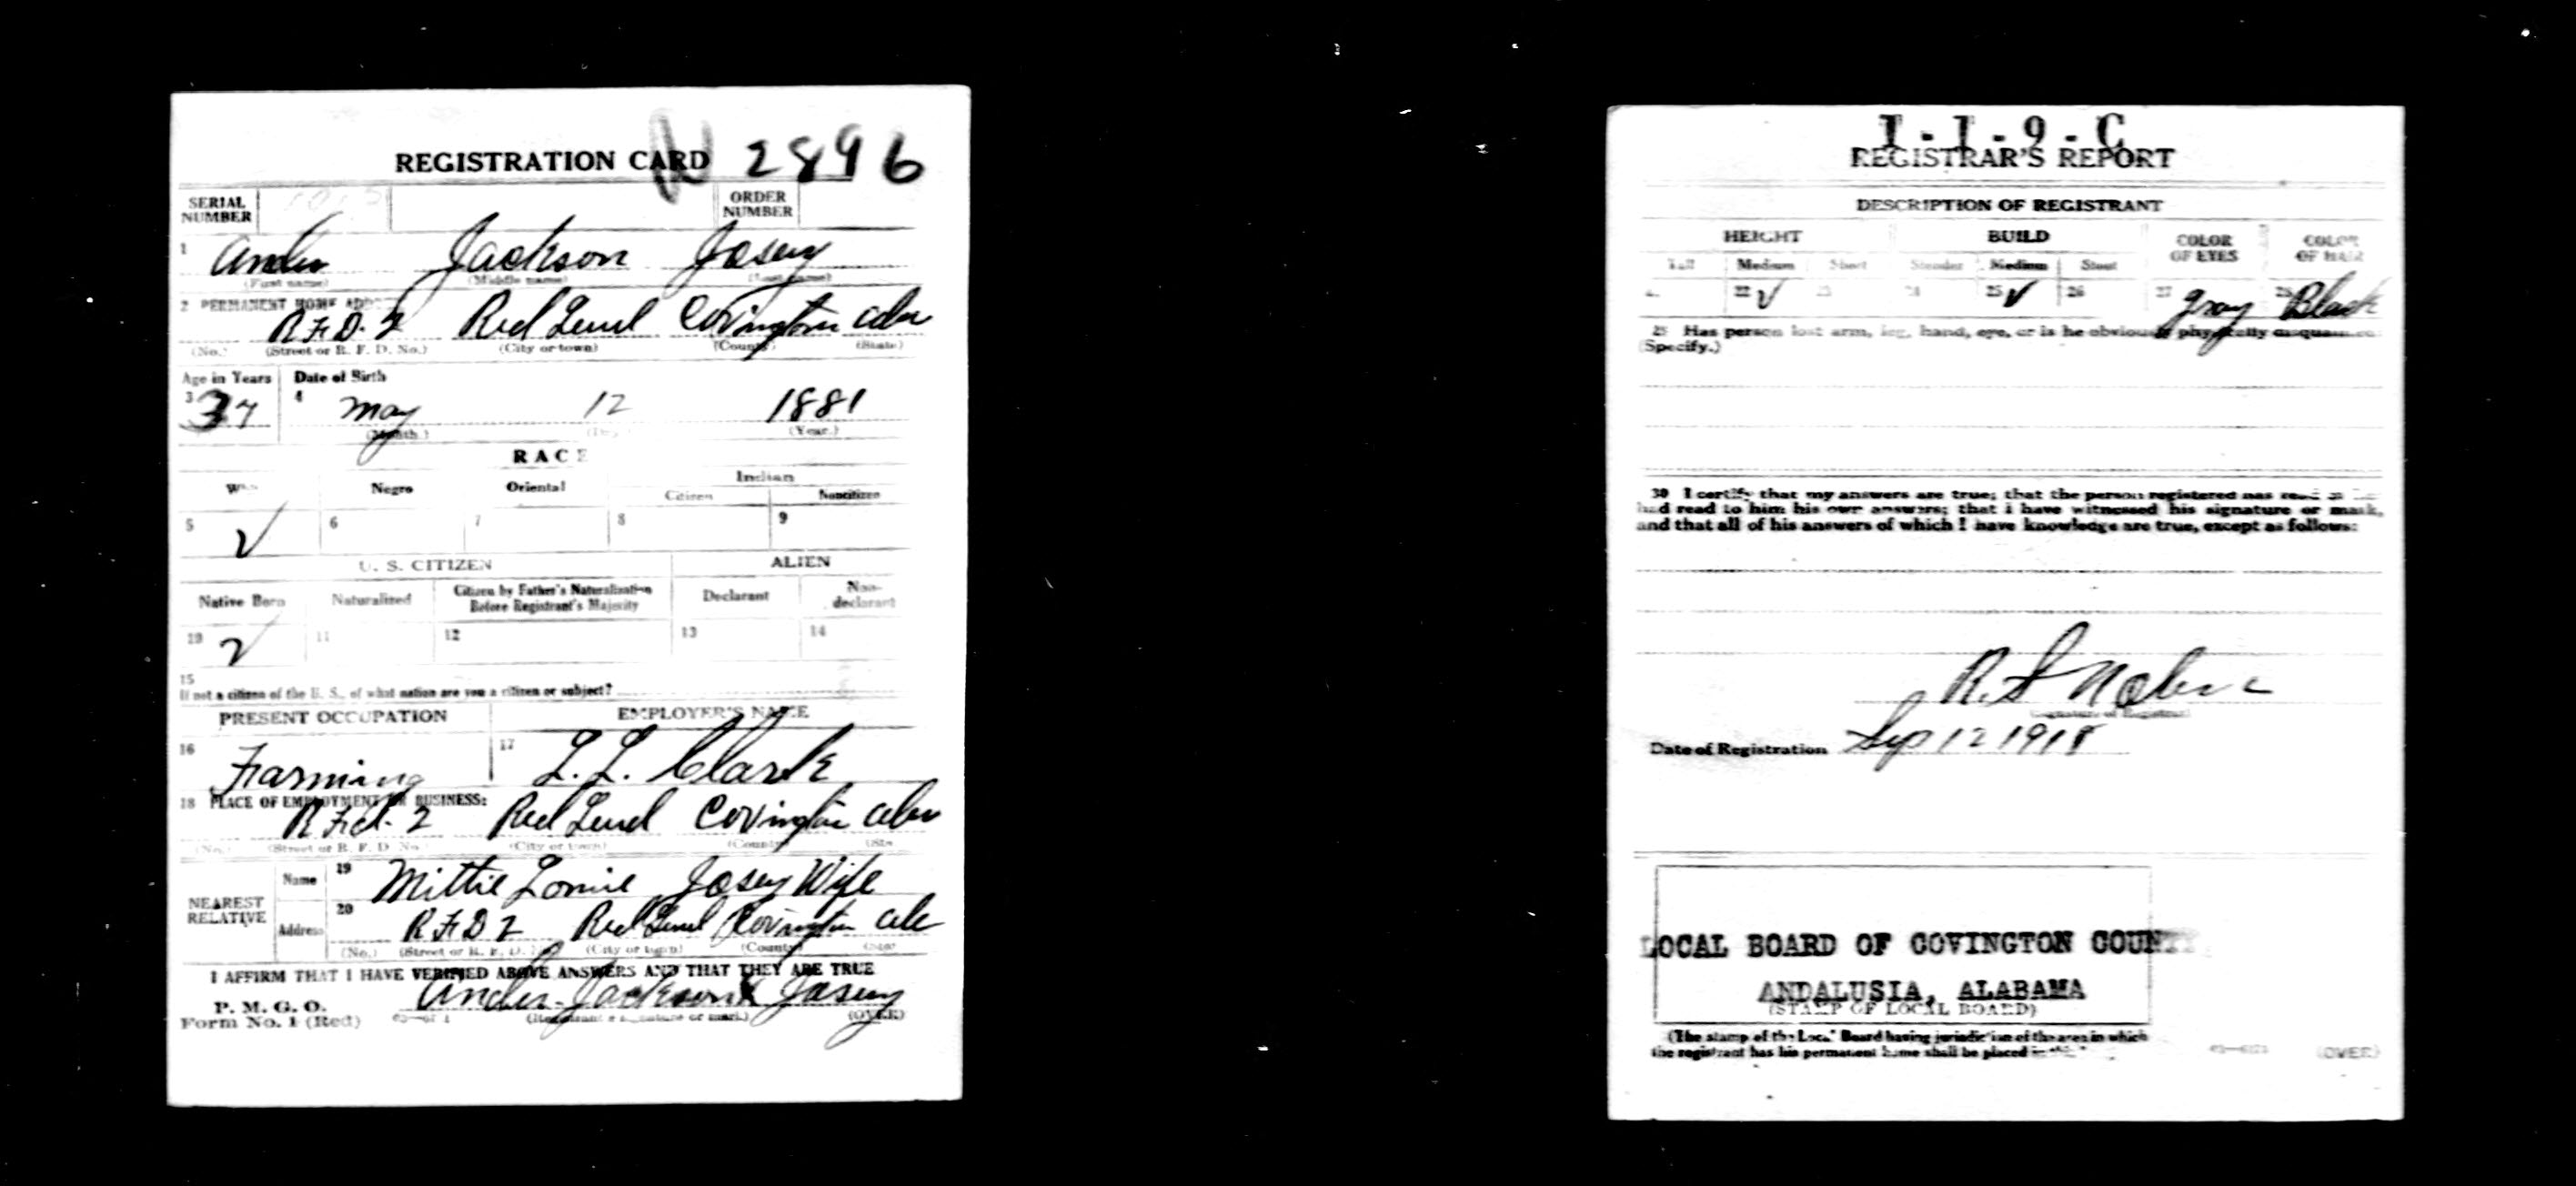 REGISTRATION CARD 2896
SERIAL NUMBER
ORDER NUMBER
1 Jackson Josey
(First name) (Middle name) (Last name)
2 PERMANENT HOME ADD
R.F.D. 2 Red Level Covington Ala
(No.) (Street or R. F. D. No.) (City or town) (County) (State)
Age in Years Date of Birth
3 37 4 May 12 1881
(Month.) (Day (Year.)
RACE
Negro Oriental Indian
Citizen Noncitizen
5 √ 6 7 8 9
U. S. CITIZEN ALIEN
Native Born Naturalized Citizen by Father's Naturalization Before Registrant's Majority Declarant Non-declarant
10 √ 11 12 13 14
15
If not a citizen of the U. S., of what nation are you a citizen or subject?
PRESENT OCCUPATION EMPLOYER'S NAME
16 Farming 17 L. L. Clark
18 PLACE OF EMPLOYMENT OR BUSINESS:
R.F.d. 2 Red Level Covington Ala
(No.) (Street or R. F. D. No (City or town) (County)
NEAREST RELATIVE
Name 19 Mittie Josey Wife
Address 20 R.F.D 2 Red Level Covington Ala
(No.) (Street or R. F. D. (City or town) (County)
I AFFIRM THAT I HAVE VERIFIED ABOVE ANSWERS AND THAT THEY ARE TRUE
P. M. G. O.
Form No. 1 (Red)
Jackson X Josey
(Registrant's signature or mark.) (OVER)
1-1-9-C
REGISTRAR'S REPORT
DESCRIPTION OF REGISTRANT
HEIGHT BUILD COLOR OF EYES COLOR OF HAIR
Tall Medium Short Slender Medium Stout
22 √ 23 24 25 √ 26 27 Gray 28 Black
29 Has person lost arm, leg, hand, eye, or is he obviously physically disqualified
(Specify.)
30 I certify that my answers are true; that the person registered has read or
had read to him his own answers; that I have witnessed his signature or mark,
and that all of his answers of which I have knowledge are true, except as follows:
R. S.
(Signature of Registrar)
Date of Registration Sep 12 1918
LOCAL BOARD OF COVINGTON COUNTY
ANDALUSIA, ALABAMA
(STAMP OF LOCAL BOARD)
(The stamp of the Local Board having jurisdiction of the area in which
the registrant has his permanent home shall be placed in
(OVER)